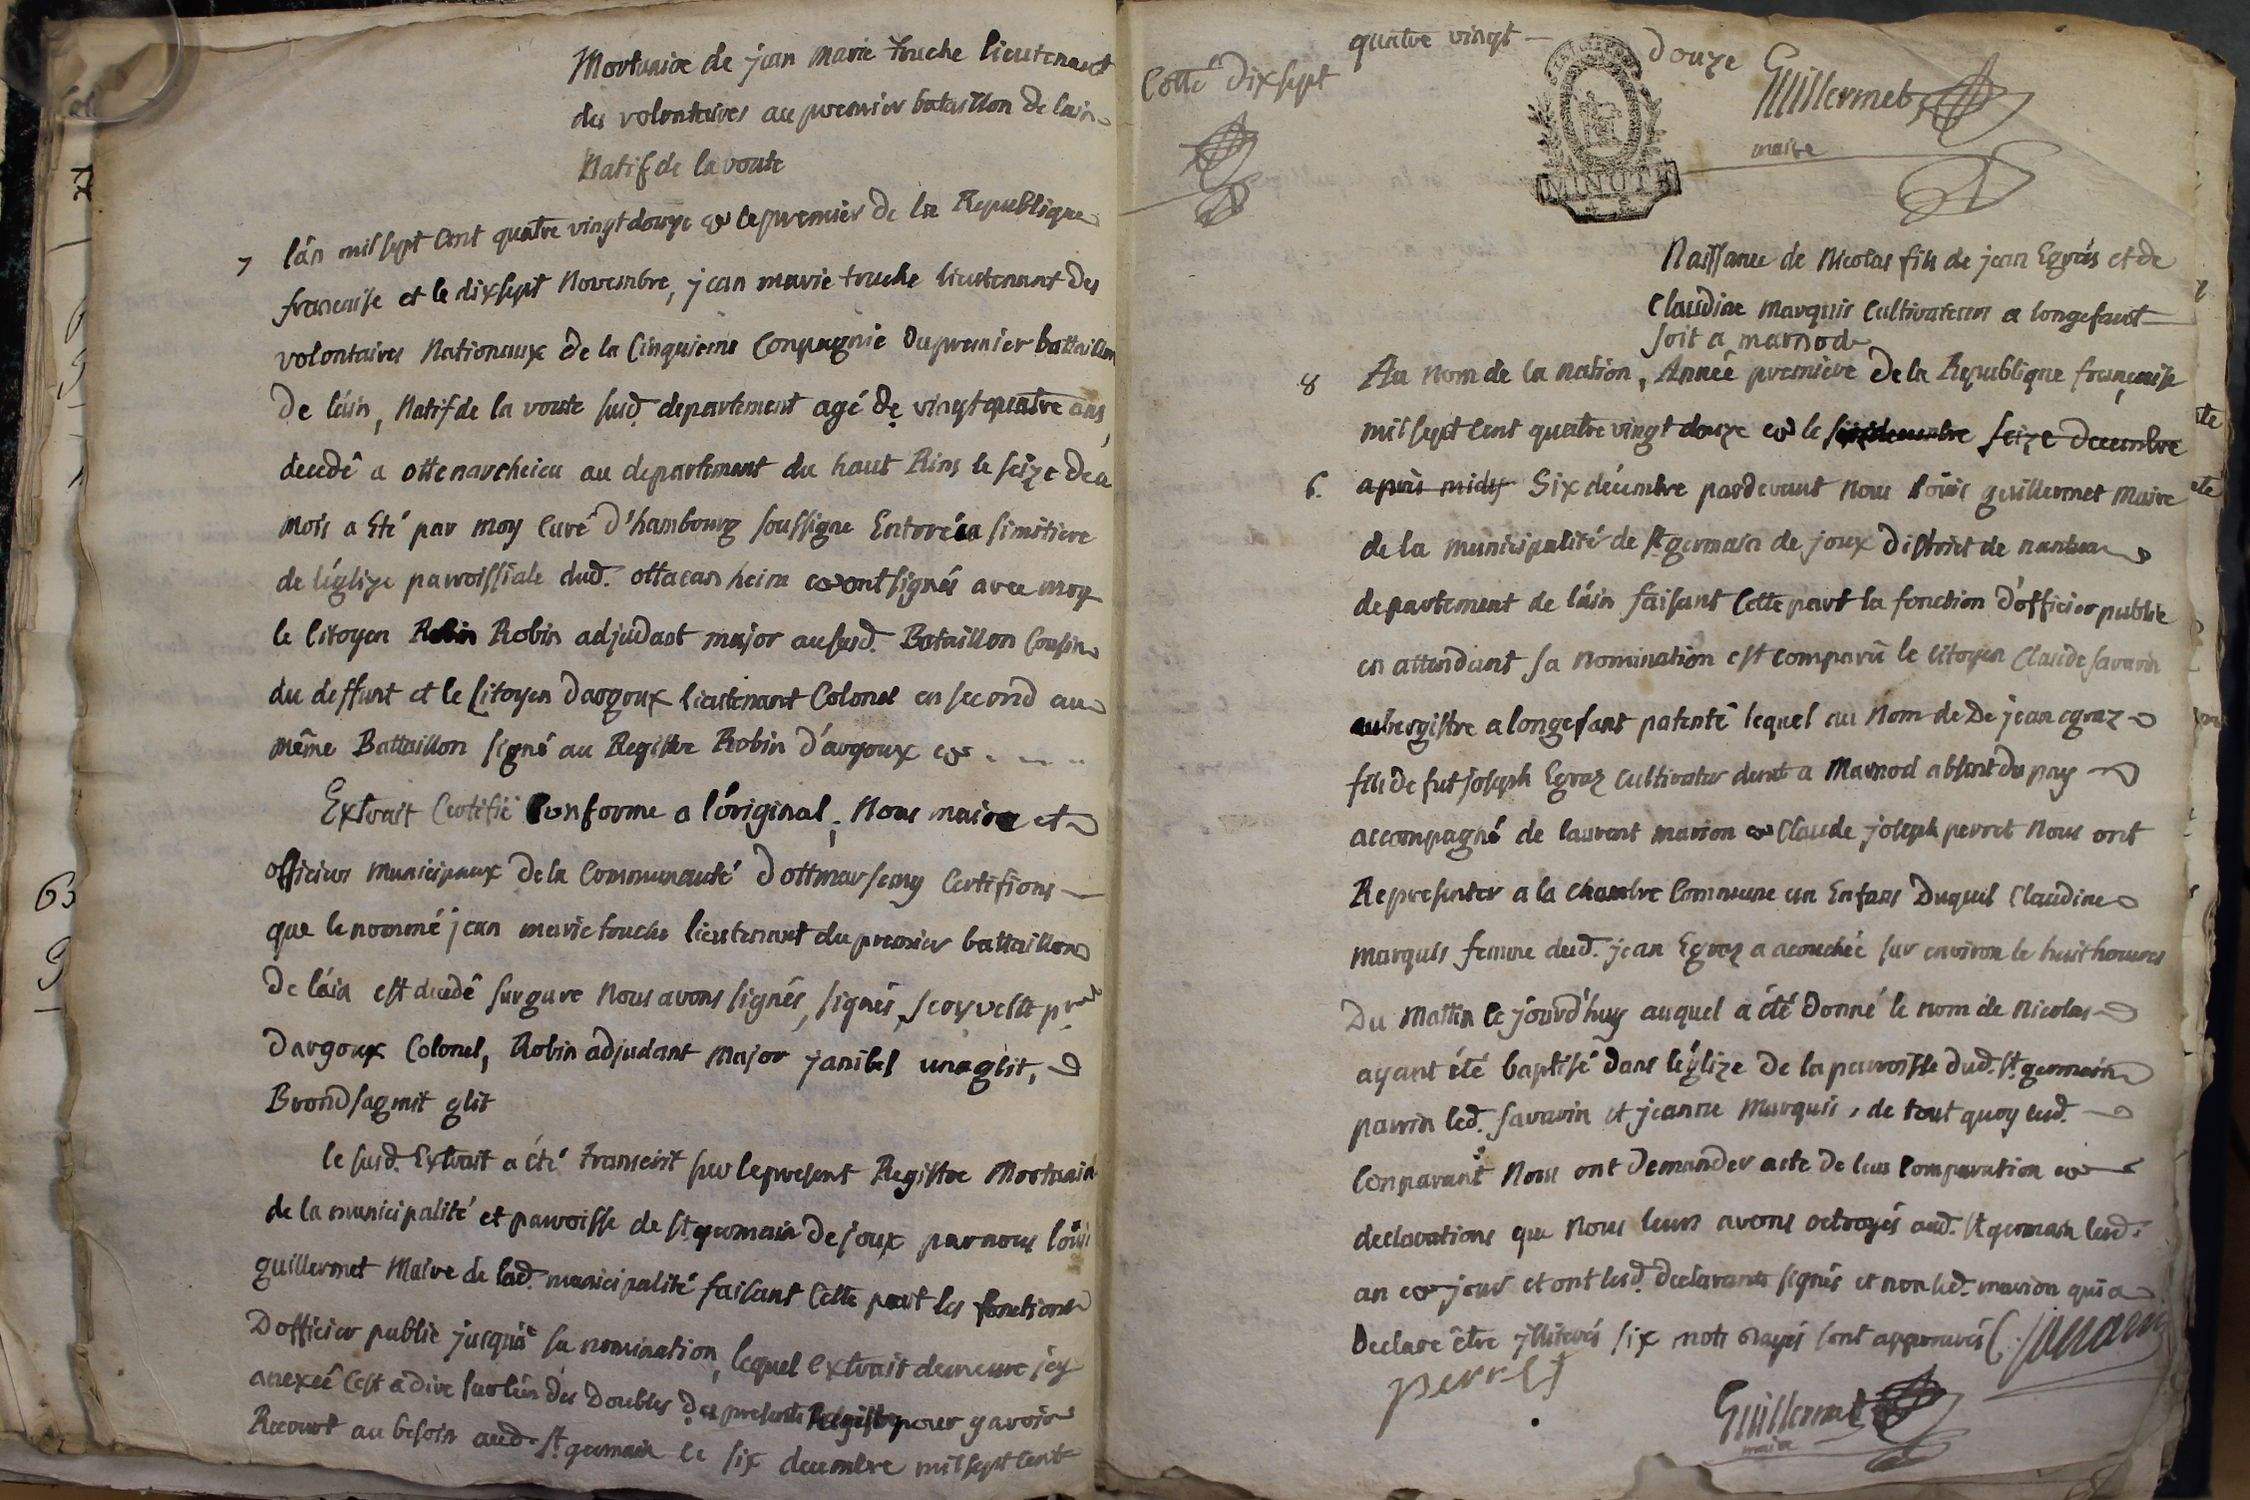 Mortuaire de jean marie truche lieutenant
des volontaires au premier bataillon de lain
Natif de la voute
7 lán mil sept Cent quatre vingt douze et le premier de la Republique
francaise et le dixsept Novembre, jean marie truche lieutenant des
volontaires Nationaux de la Cinquieme Conpagnie du premier battaillon
De láin, Natif de la voute susd. departement agé de vingt quatre ans,
decedé a ottenarcheicu au departement du haut Rins le seize de ce
mois a Eté par moy Curé d'hambourg soussigne Entoré simitiere
de léglize parroissiale dud. ottacanheim et ont signés avec moy
le Citoyen Robin adjudant major au susd. Bataillon Cousin
du deffunt et le Citoyen dargoux lieutenant Colonel en second au
même Battaillon signé au Registre Robin d'argoux et
Extrait Certifié Conforme a lóriginal; Nous maire et
officiers Municipaux De la Communauté Dottmarseny Certifions
que le nommé jean marie truche lieutenant du premier battaillon
De láin est decedé surgure Nous avons signés, signés,
Dargoux Colonel, Robin adjudant Major janibel unaglit,
Brondsagmit glit
le susd. Extrait a été transcrit sur le present Registre Mortuair
de la municipalité et parroisse de st. germain De joux par nous loüis
guillermet Maire de lad. municipalité faisant Cette part les fonctions
Dofficier public jusquá sa nomination, lequel extrait demeure jcy
anexeé Cest adire sur lún des Doubles des presents Registre pour y avoir
Recourt au besoin aud. st. germain le six decembre mil sept cent
quatre vingt douze Guillermet
maire
Cotté dixsept
MINUTE
Naissance de Nicolas fils de jean Egrás et de
Claudine Marquis Cultivateurs a longefant
soit a marnod
8 Au Nom de la nation, Année premiere De la Republique française
mil sept Cent quatre vingt douze et le seize decembre
6. aprés midy Six décembre pardevant Nous loüis guillermet Maire
de la municipalité de st. germain de joux District de nantua
departement de láin faisant Cette part la fonction Dófficier public
en attendant sa Nomination est comparû le Citoyen Claude savarin
aubergistre a longefant patenté lequel au Nom de De jean egraz
fils de fut joseph Egraz Cultivateur dunt a Marnod absent du pay
accompagné de laurent marion et Claude joseph perret Nous ont
Representer a la chambre Commune un Enfans Duquel Claudine
Marquis femme dud. jean Egraz a acouchéé sur environ le huit houres
Du Mattin le jóurd'huy auquel a été Donné le nom de Nicolas
ayant été baptisé dans léglize De la parroisse dud. st. germain
parrin led. savarin et jeanne Marquis, de tout quoy lesd.
Conparant Nous ont Demander acte de leur Comparution et
declarations que Nous leurs avons octroyés aud. st germain lesd.
an et jour et ont lesd. Declarants signés et non led. marion qui a
Declare être jlliterés six mots rayés sont approuvés C. savarin
perret
Guillermet
maire